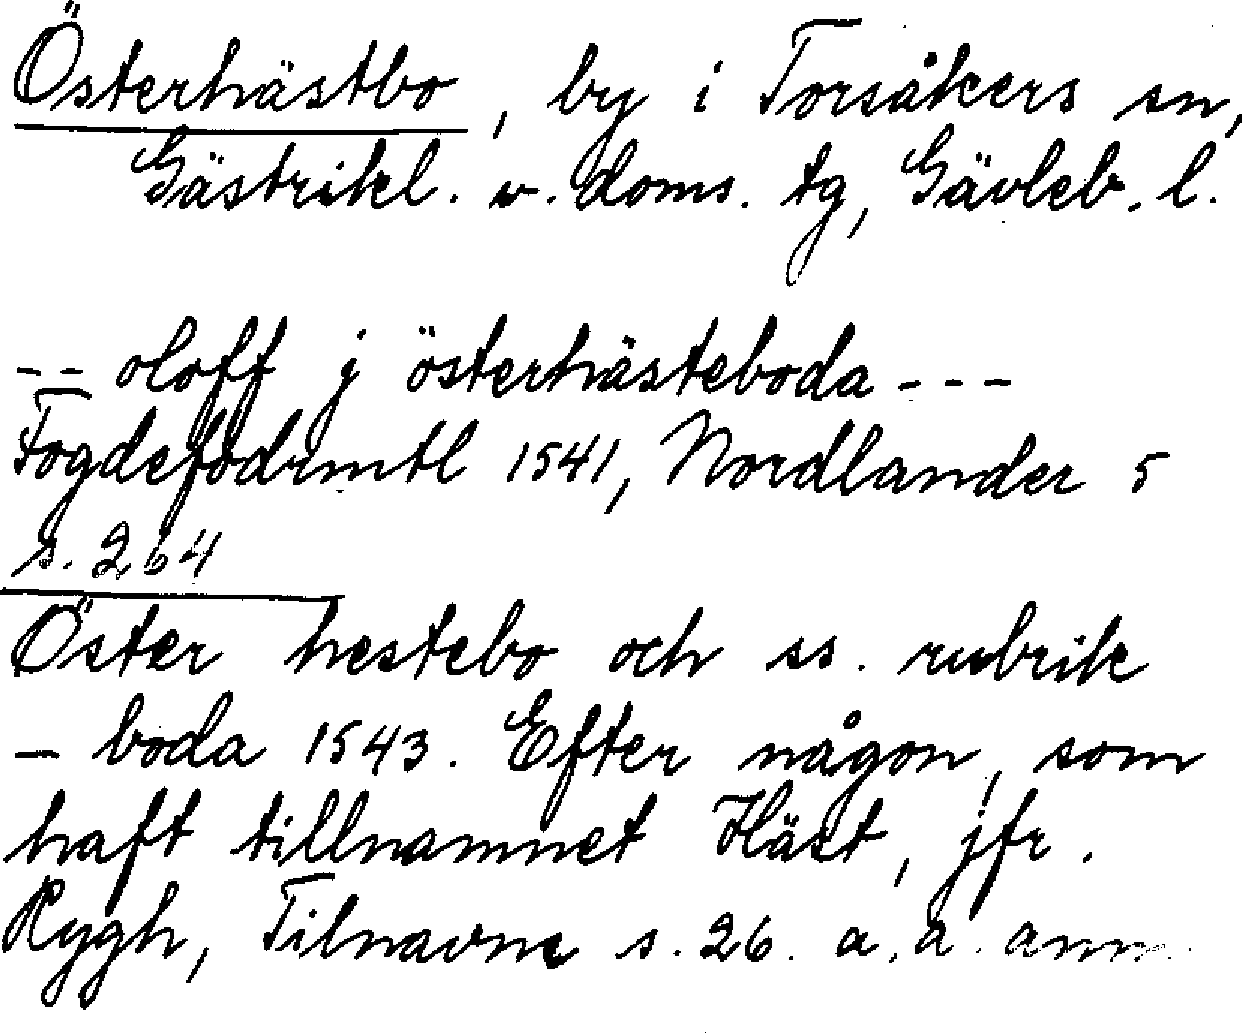 Österhästbo, by i Torsåkers sn,
Gästrikl. v. doms. tg, Gävleb. l.
-- oloff j österhästeboda ---
Fogdefodrmtl 1541, Nordlander 5
s. 264
Öster hestebo och ss. rubrik
- boda 1543. Efter någon, som
haft tillnamnet Häst, jfr.
Rygh, Tilnavne s. 26. a. a. anm.